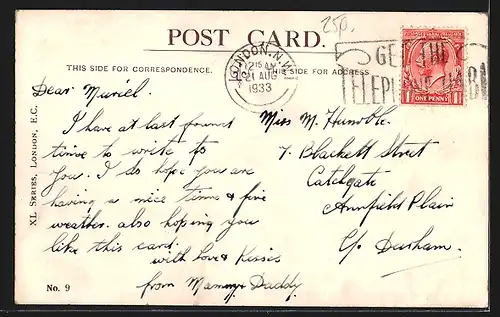 250.
POST CARD.
THIS SIDE FOR CORRESPONDENCE.
THIS SIDE FOR ADDRESS
LONDON. N.W.
15 AM
21 AUG
1933
GET THE
TELEPHONE HABIT
ONE PENNY
Dear Muriel.
I have at last found
time to write to
you. I do hope you are
having a nice time & fine
weather. also hoping you
like this card.
with Love & Kisses
from Mammy & Daddy
Miss M. Humble.
7. Blackett Street
Catchgate
Annfield Plain
C/o. Durham.
XL SERIES, LONDON, E.C.
No. 9